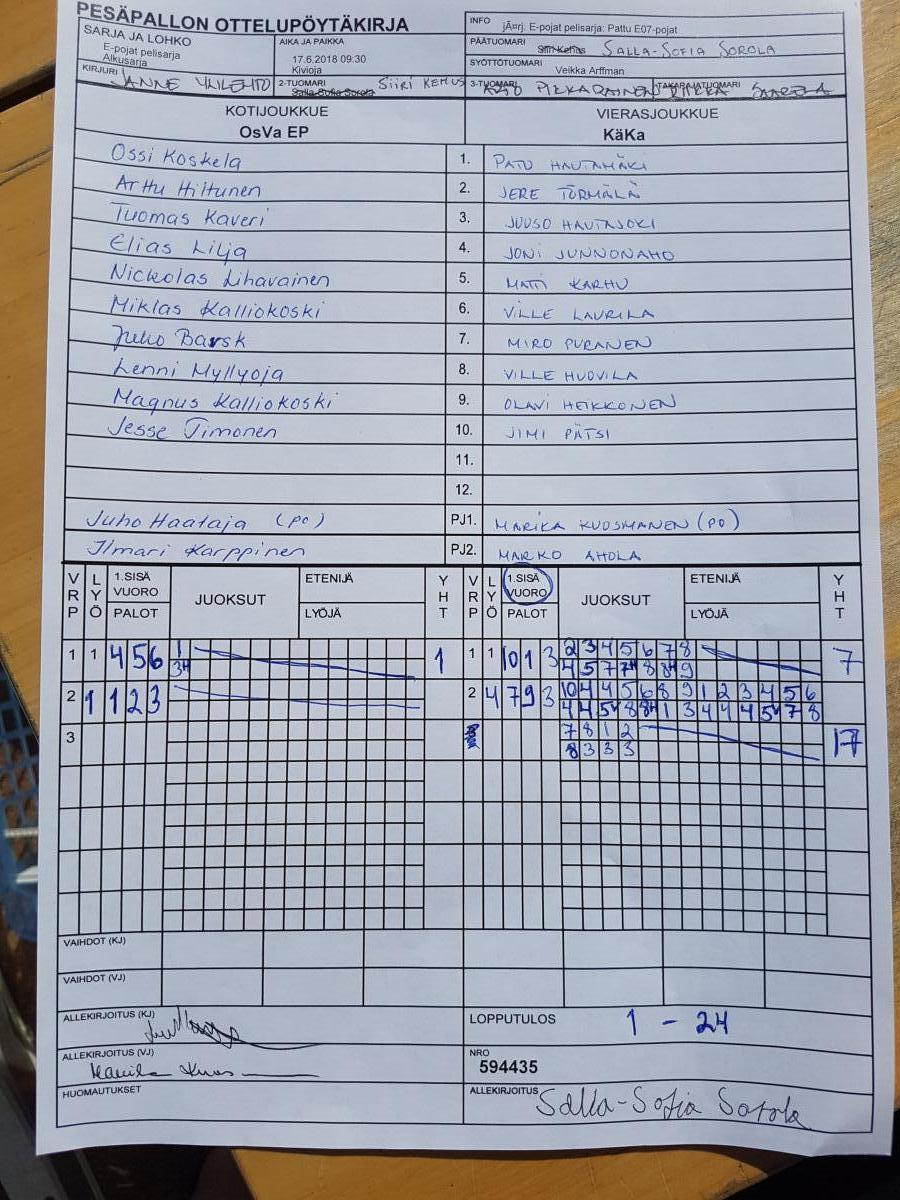 PESÄPALLON OTTELUPÖYTÄKIRJA
INFO
jÃ¤rj. E-pojat pelisarja: Pattu E07-pojat
SARJA JA LOHKO
E-pojat pelisarja
Alkusarja
AIKA JA PAIKKA
17.6.2018 09:30
Kivioja
PÄÄTUOMARI
Siiri Kemus SALLA-SOFIA SOROLA
SYÖTTÖTUOMARI
Veikka Arffman
KIRJURI JANNE YLILEHTO
2-TUOMARI Salla-Sofia Sorola SIIRI KEMUS
3-TUOMARI PIKKARAINEN
TAKARAJATUOMARI SAARELA
KOTIJOUKKUE
OsVa EP
VIERASJOUKKUE
KäKa
Ossi Koskela 1. PATU HAUTAMÄKI
Arttu Hiltunen 2. JERE TÖRMÄLÄ
Tuomas Kaveri 3. JUUSO HAUTAJOKI
Elias Lilja 4. JONI JUNNONAHO
Nickolas Lihavainen 5. MATTI KARHU
Miklas Kalliokoski 6. VILLE LAURILA
Juho Barsk 7. MIRO PURANEN
Lenni Myllyoja 8. VILLE HUOVILA
Magnus Kalliokoski 9. OLAVI HEIKKONEN
Jesse Timonen 10. JIMI PÄTSI
11.
12.
Juho Haataja (PO) PJ1. MARIKA KUOSMANEN (PO)
Ilmari Karppinen PJ2. MARKO AHOLA
VRP LYÖ 1.SISÄ VUORO PALOT JUOKSUT ETENIJÄ LYÖJÄ YHT VRP LYÖ 1.SISÄ VUORO PALOT JUOKSUT ETENIJÄ LYÖJÄ YHT
1 1 4 5 6 1 1 1 1 10 1 3 2 3 4 5 6 7 8 7
3H 4 5 7 7H 8 8H 9
2 1 1 2 3 2 4 7 9 3 10 4 4 5 6 8 9 1 2 3 4 5 6
4 4 5 8 8H 1 3 4 4 4 5 7 8
3 7 8 1 2 17
8 3 3 3
VAIHDOT (KJ)
VAIHDOT (VJ)
ALLEKIRJOITUS (KJ)
LOPPUTULOS 1 - 24
ALLEKIRJOITUS (VJ)
NRO
594435
HUOMAUTUKSET
ALLEKIRJOITUS Salla-Sofia Sorola